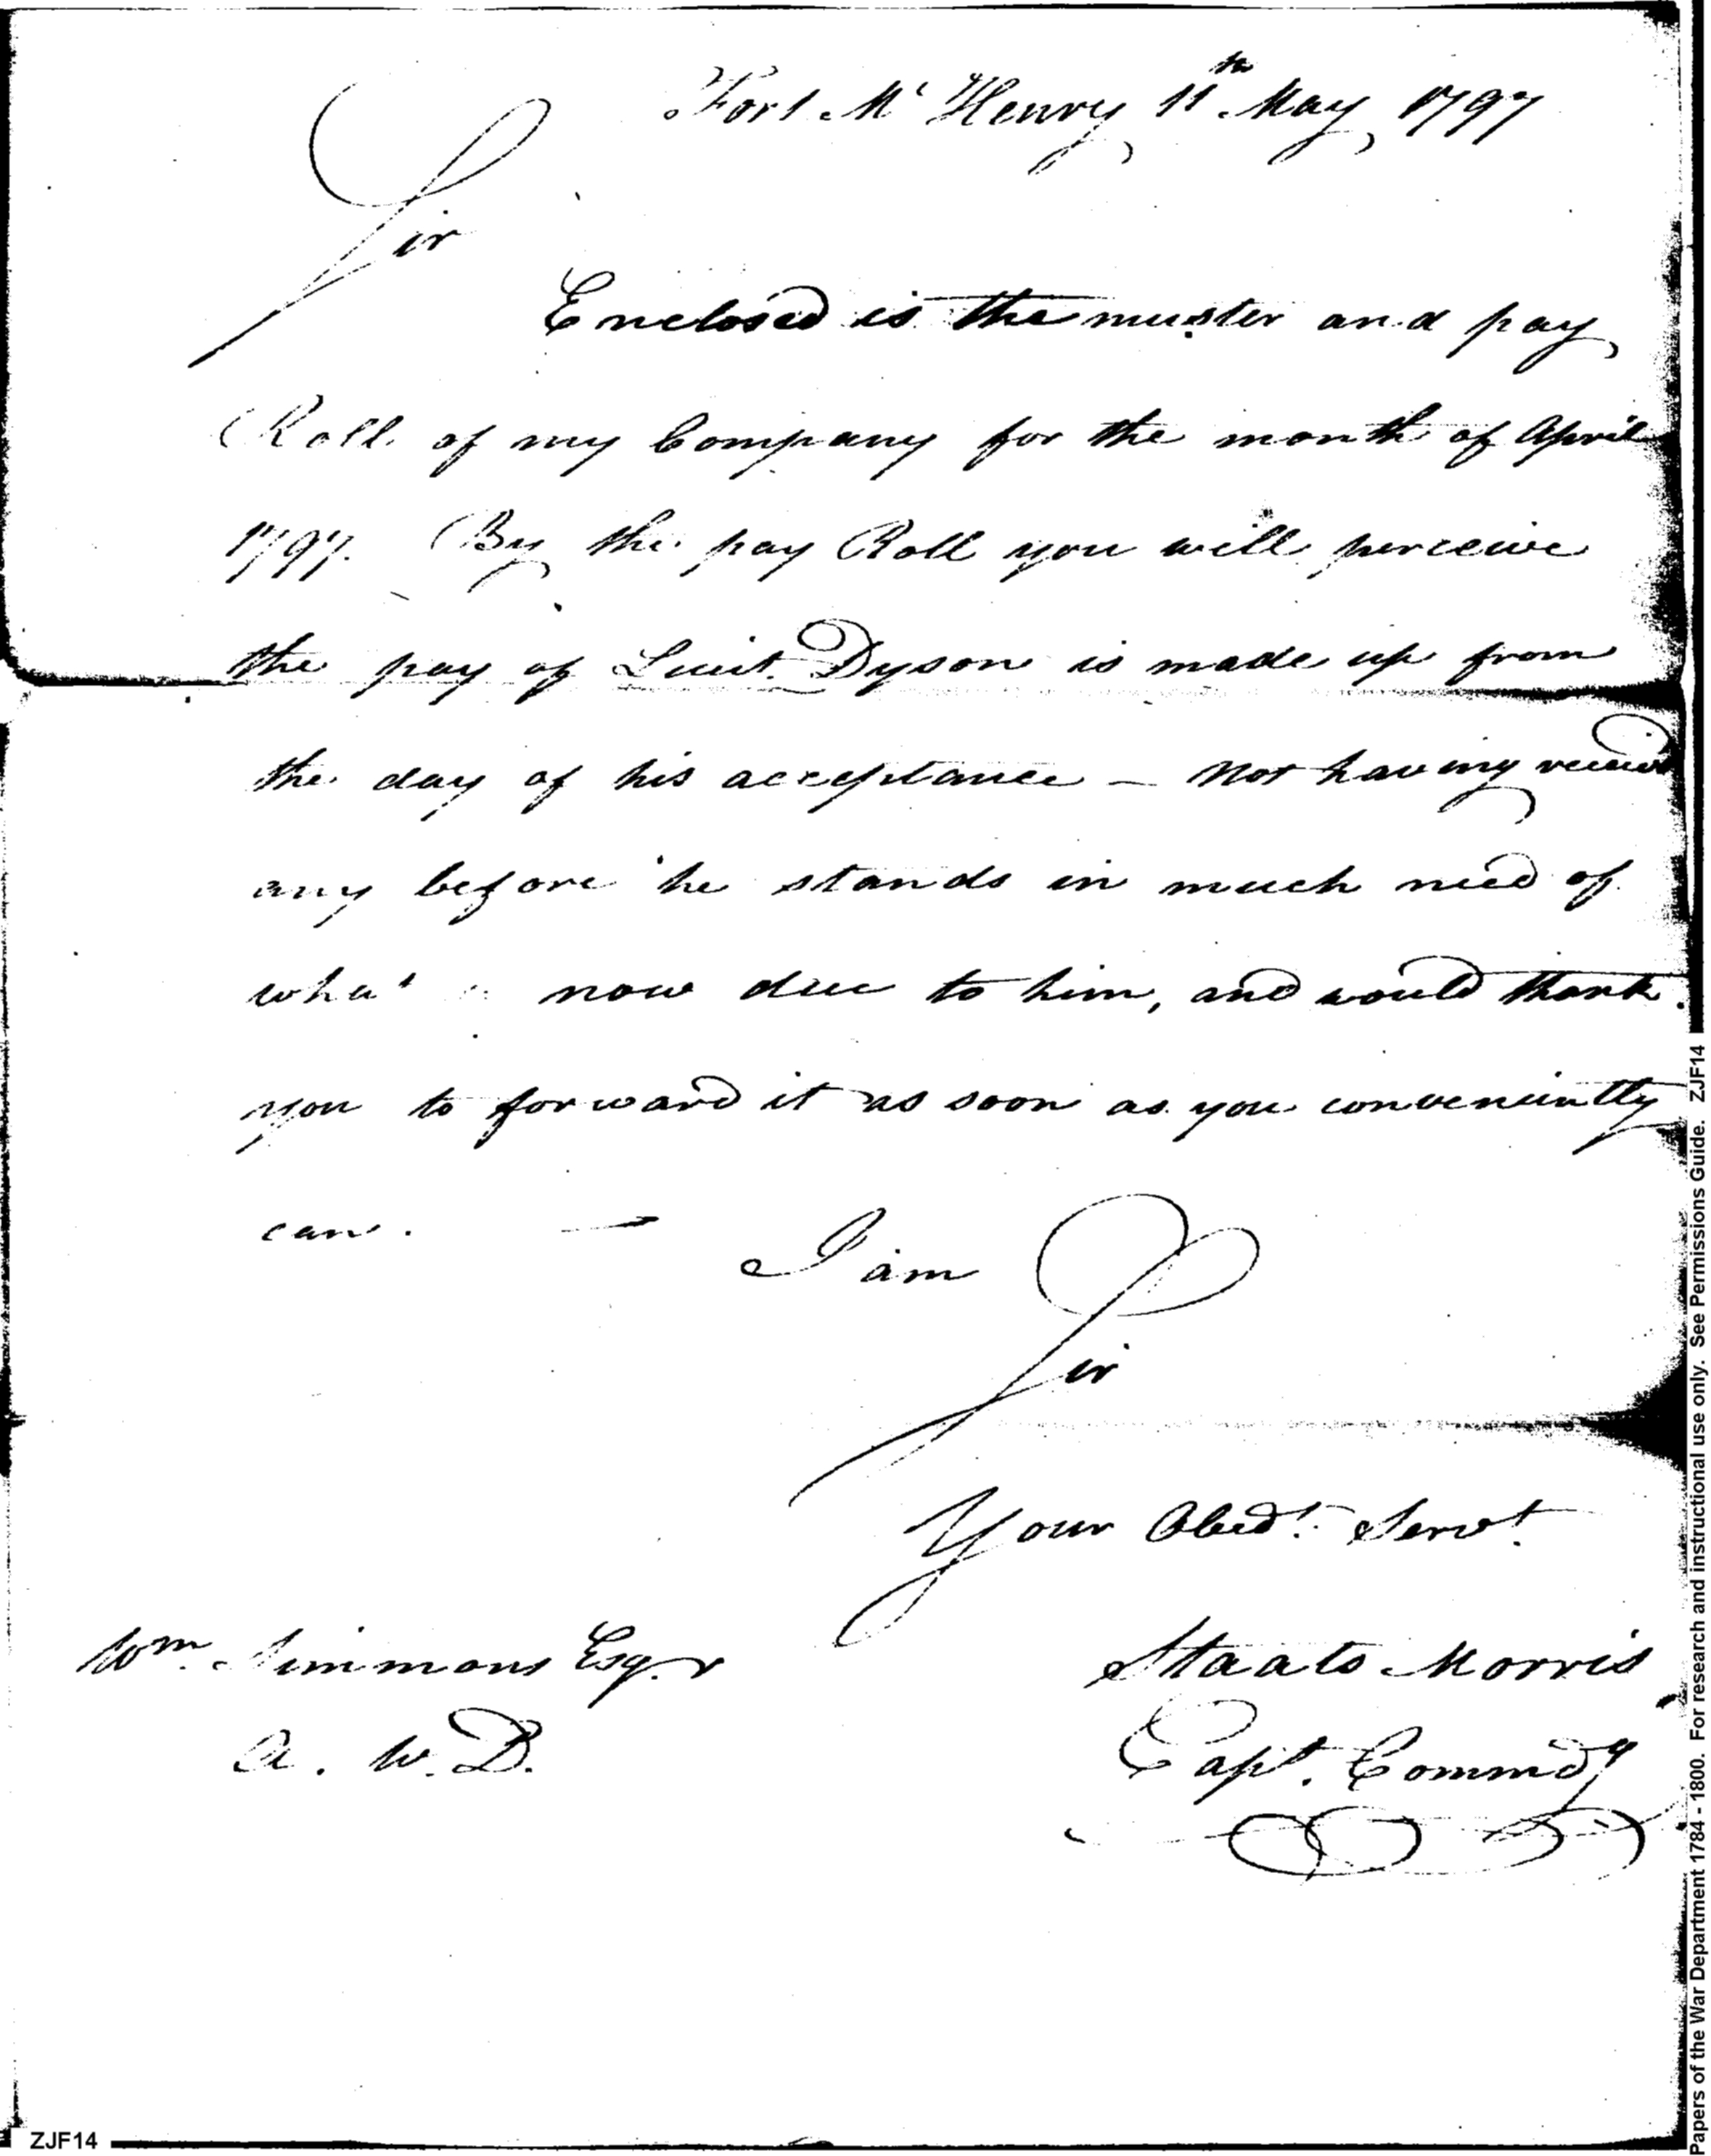 Fort Mc Henry, 11th May, 1797
Sir
Enclosed is the muster and pay
Roll of my Company for the month of April
1797. By the pay Roll you will perceive
the pay of Lieut. Dyson is made up from
the day of his acceptance – not having received
any before he stands in much need of
what is now due to him, and would thank
you to forward it as soon as you conveniently
can. —
I am
Sir
Your Obedt. Servt.
Wm. Simmons Esqr
Staats Morris
A. W. D.
Capt. Commdg
ZJF14
Papers of the War Department 1784 - 1800. For research and instructional use only. See Permissions Guide. ZJF14